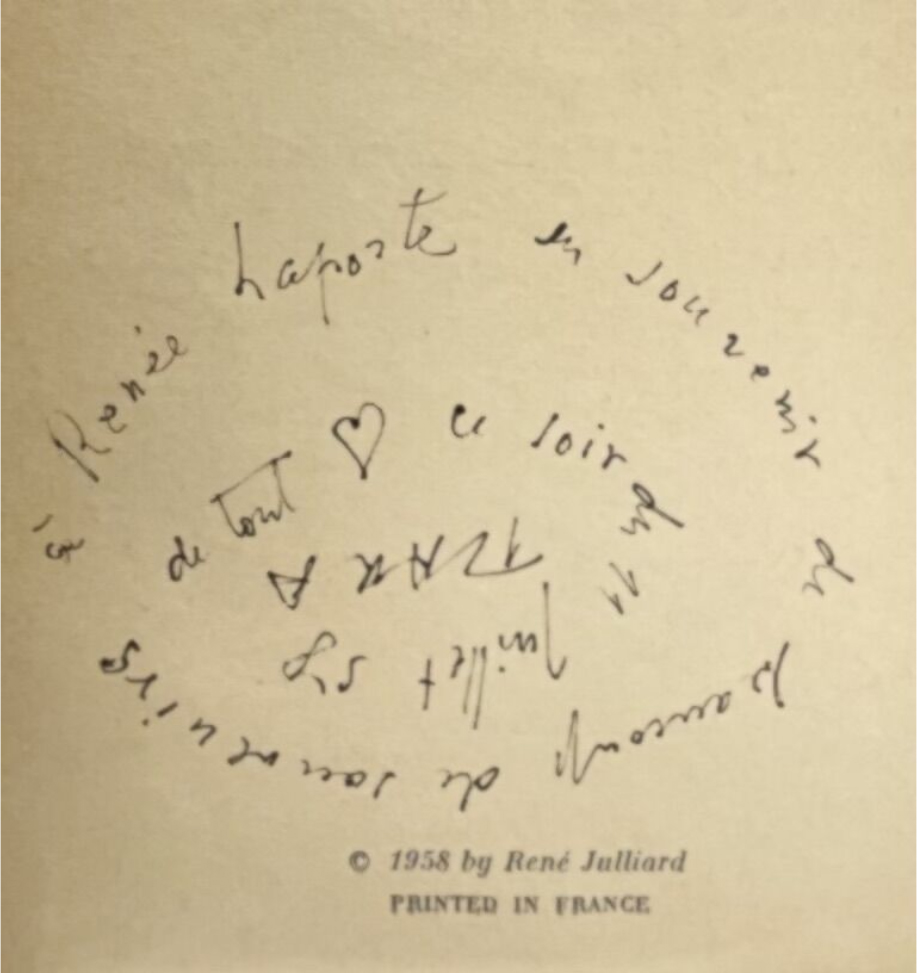 à Renée Laporte en souvenir de beaucoup de souvenirs
de tout ♡ ce soir du 11 Juillet 58
TZARA
© 1958 by René Julliard
PRINTED IN FRANCE